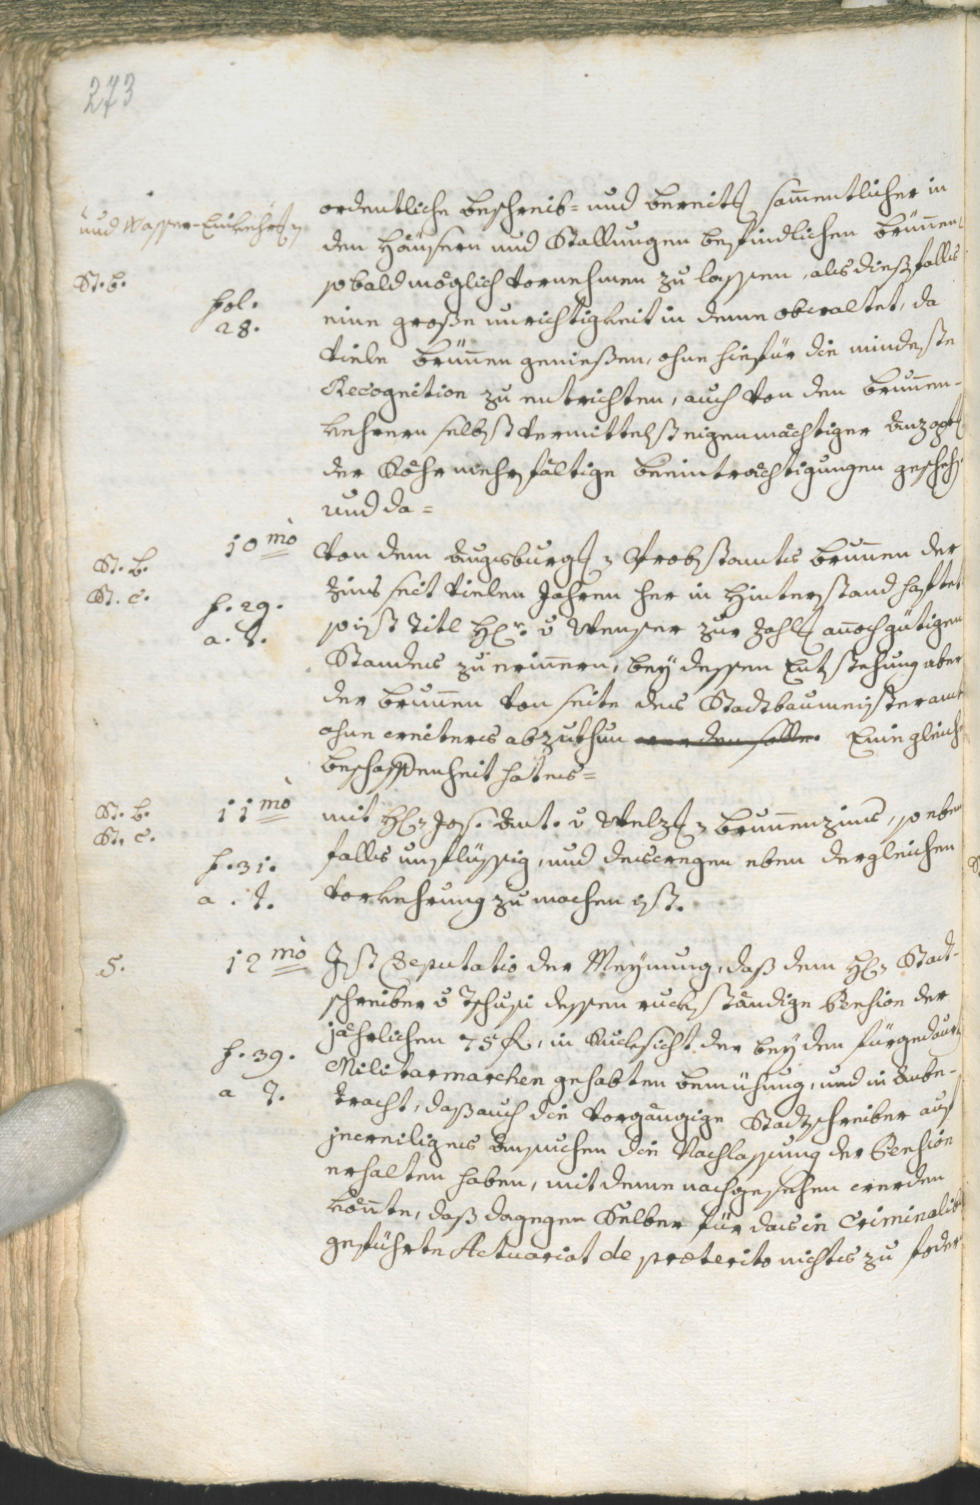 273
ordentliche beschreib= und bereits samentlicher in
und Wasser-Einkehrß
den Häusern und Stallungen befindlichen brunnen
St. b.
sobald möglich vornehmen zu lassen, als dießfalls
fol.
28.
eine große unrichtigkeit in deme obwaltet, da
viele brunnen genießen, ohne hiefür die mindeste
Recognition zu entrichten, auch von den brunnen-
kehrern selbst vermittelst eigenmächtiger
der Röhr mehrfältige beeinträchtigungen gescheh
und da=
10mo
von dem Augsburg Probstamts brunnen der
St. b.
St. c.
zins seit vielen Jahren her in Hinterstand haftet
f. 29.
a. t.
so ist Titl H: v zur Zahl annoch gütigen
Standes zu erinnern, bey dessen Entstehung aber
der brunnen von seite des Stadtbaumeisteramt
ohne weiters abzuthun werden solle. Eine gleiche
beschaffenheit hat es=
11mo
St. b.
St. c.
mit H: Jos. Ant. v Welz brunnenzins, so eben
f. 31.
falls unflüssig, und deswegen eben dergleichen
a. t.
vorkehrung zu machen ist.
5.
12mo
Ist Deputatio der Meynung, daß dem H: Stadt-
schreiber v Tschusi dessen ruckständige Pension der
jährlichen 75 f, in Rucksicht der bey den fürgedaur
f. 39.
a t.
Militarmarchen gehabten bemühung, und in Anbe-
tracht, daß auch die vorgängige Stadtschreiber auf
jeweiliges Ansuchen die Nachlassung der Pension
erhalten haben, mit deme nachgesehen werden
könnte, daß dagegen Selber für das in Criminalib
geführte Actuariat de præterito nichts zu foder